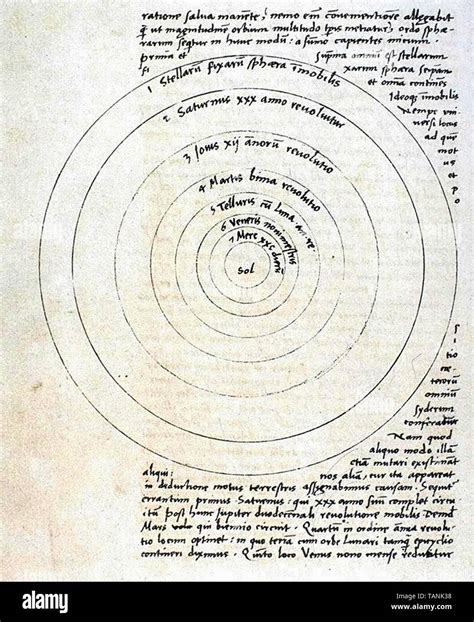 ratione salva manēte, nemo em̄ convenientiorē allegabit
q̃ ut magnitudinē orbium multitudo tp̄is metiatur, ordo sphæ-
rarum seq̃tur in hunc modū: a sumo capientes initium.
prima et suprema omniū est stellarum
fixarum sphæra seipsam
et omnia continens
Ideoq̃ immobilis
Nempe uni-
versi locus
ad quē
mot
us et
po
1 Stellarū fixarū sphæra imobilis
2 Saturnus xxx anno revoluitur
3 Jovis xij annorū revolutio
4 Martis bima revolutio
5 Telluris cū Luna an. re
6 Veneris nonimestris
7 Merc xxc dierū
Sol
S
i
tio
cæ
terorū
omniū
syderum
conferatur
Nam quod
aliquo modo illā
etiā mutari existimāt
aliqui: nos aliā, cur ita appareat
in deductione motus terrestris assignabimus causam. Sequit
errantium primus Saturnus: qui xxx anno suū complet circu
itū post hunc Jupiter duodecennali revolutione mobilis. Demū
Mars volo qui biennio circuit. Quartū in ordine annua revolu
tio locum optinet: in quo terrā cum orbe Lunari tanq̃ epicyclio
contineri diximus. Quīto loco Venus nono mense reducitur
alamy
Image ID: TANK38
www.alamy.com